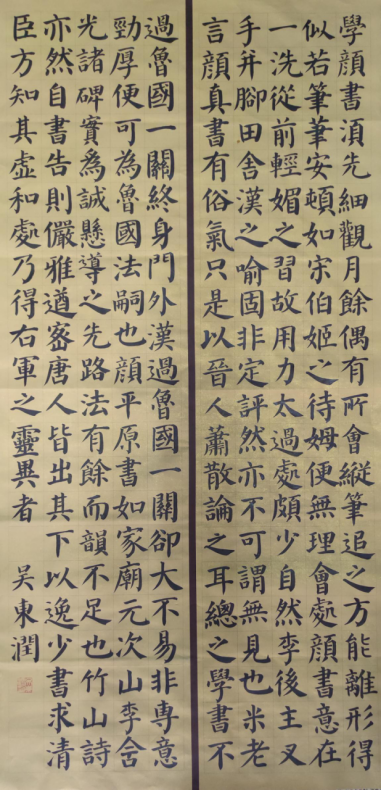 學顏書須先細觀月餘偶有所會縱筆追之方能離形得
似若筆筆安頓如宋伯姬之待姆便無理會處顏書意在
一洗從前輕媚之習故用力太過處頗少自然李後主叉
手并腳田舍漢之喻固非定評然亦不可謂無見也米老
言顏真書有俗氣只是以晉人蕭散論之耳總之學書不
過魯國一關終身門外漢過魯國一關卻大不易非專意
勁厚便可為魯國法嗣也顏平原書如家廟元次山李含
光諸碑實為誠懸導之先路法有餘而韻不足也竹山詩
亦然自書告則儼雅遒密唐人皆出其下以逸少書求清
臣方知其虛和處乃得右軍之靈異者 吴東潤